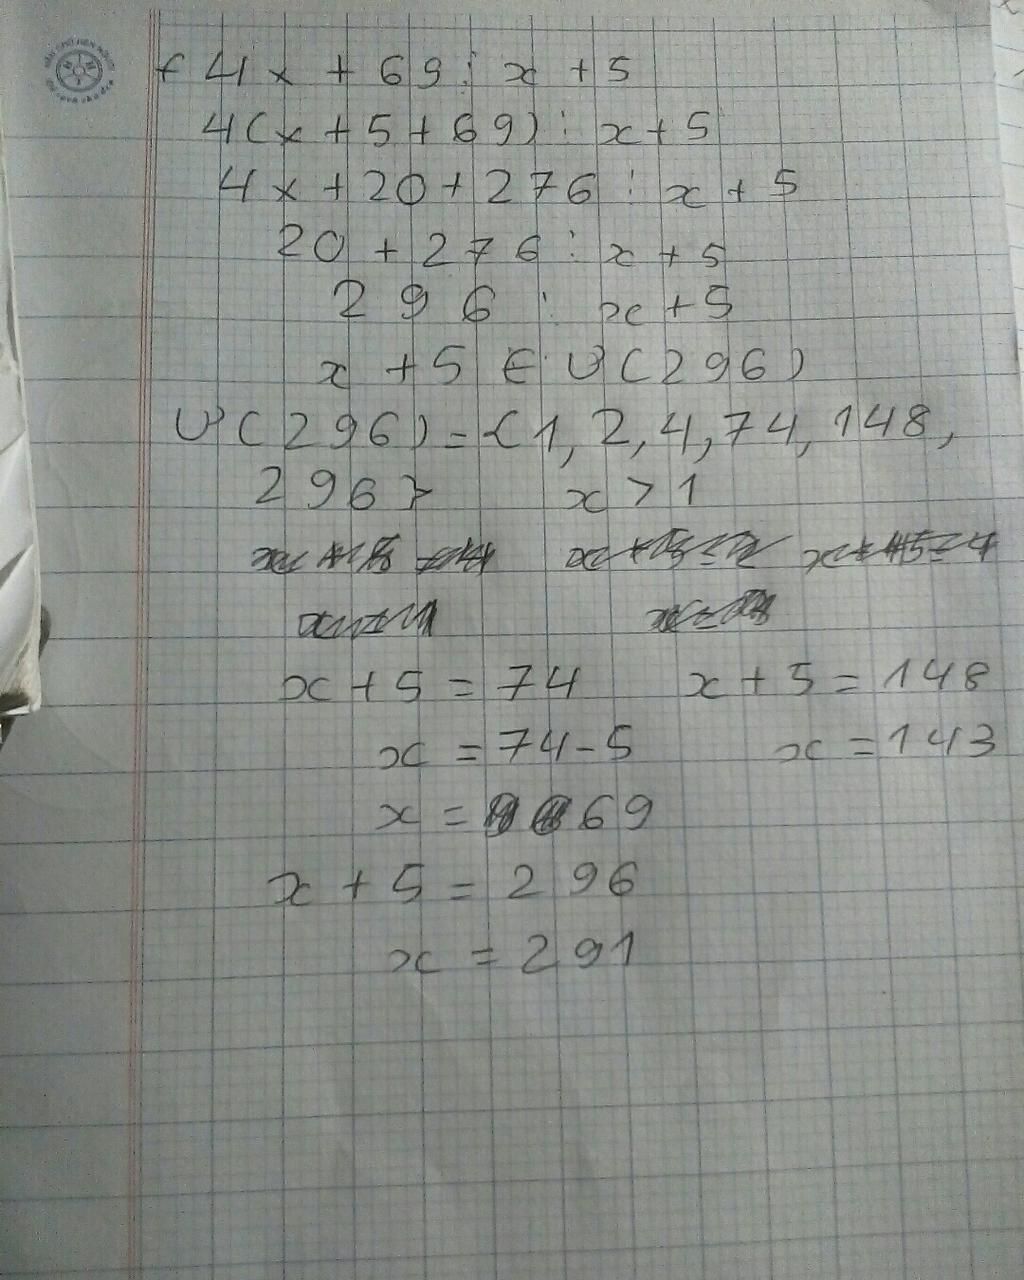 f 4x + 69 ⋮ x + 5
4(x + 5 + 69) ⋮ x + 5
4x + 20 + 276 ⋮ x + 5
20 + 276 ⋮ x + 5
296 ⋮ x + 5
x + 5 ∈ Ư(296)
Ư(296) = {1, 2, 4, 74, 148,
296} x > 1
x + 5 = 74 x + 5 = 148
x = 74 - 5 x = 143
x = 69
x + 5 = 296
x = 291